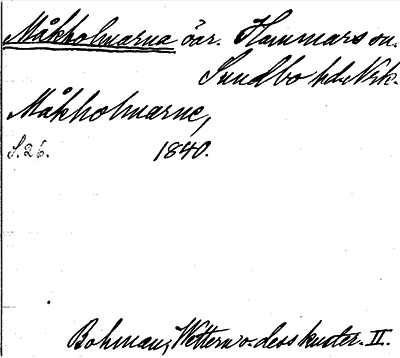 Måkholmarna öar. Hammars sn.
Sundbo hd. Nrk.
Måkholmarne,
S. 26. 1840.
Bohman, Wettern o. dess kuster. II.